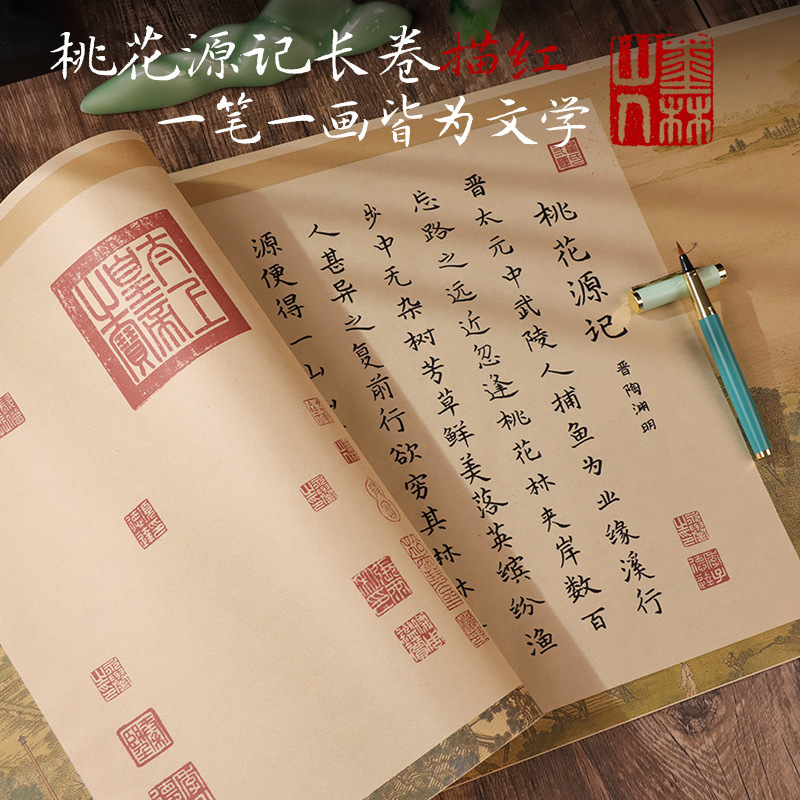 桃花源记长卷描红
一笔一画皆为文学
墨林山人
桃花源记
晋陶渊明
晋太元中武陵人捕鱼为业缘溪行
忘路之远近忽逢桃花林夹岸数百
步中无杂树芳草鲜美落英缤纷渔
人甚异之复前行欲穷其林林
源便得一山
太上皇帝之寶